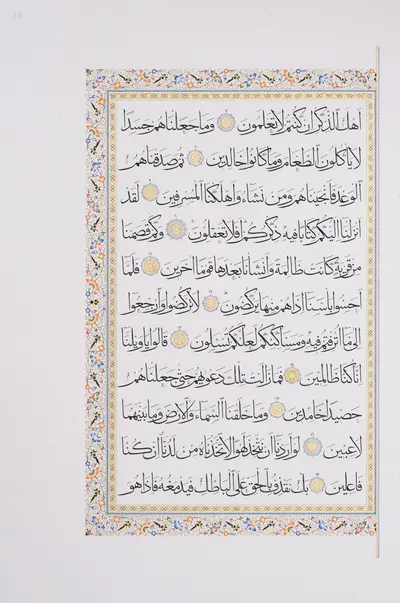 اهل الذكر ان كنتم لا تعلمون وما جعلناهم جسدا
لا يأكلون الطعام وما كانوا خالدين ثم صدقناهم
الوعد فانجيناهم ومن نشاء واهلكنا المسرفين لقد
انزلنا اليكم كتابا فيه ذكركم افلا تعقلون وكم قصمنا
من قرية كانت ظالمة وانشأنا بعدها قوما آخرين فلما
احسوا بأسنا اذا هم منها يركضون لا تركضوا وارجعوا
الى ما اترفتم فيه ومساكنكم لعلكم تسئلون قالوا يا ويلنا
انا كنا ظالمين فما زالت تلك دعويهم حتى جعلناهم
حصيدا خامدين وما خلقنا السماء والارض وما بينهما
لاعبين لو اردنا ان نتخذ لهوا لاتخذناه من لدنا ان كنا
فاعلين بل نقذف بالحق على الباطل فيدمغه فاذا هو